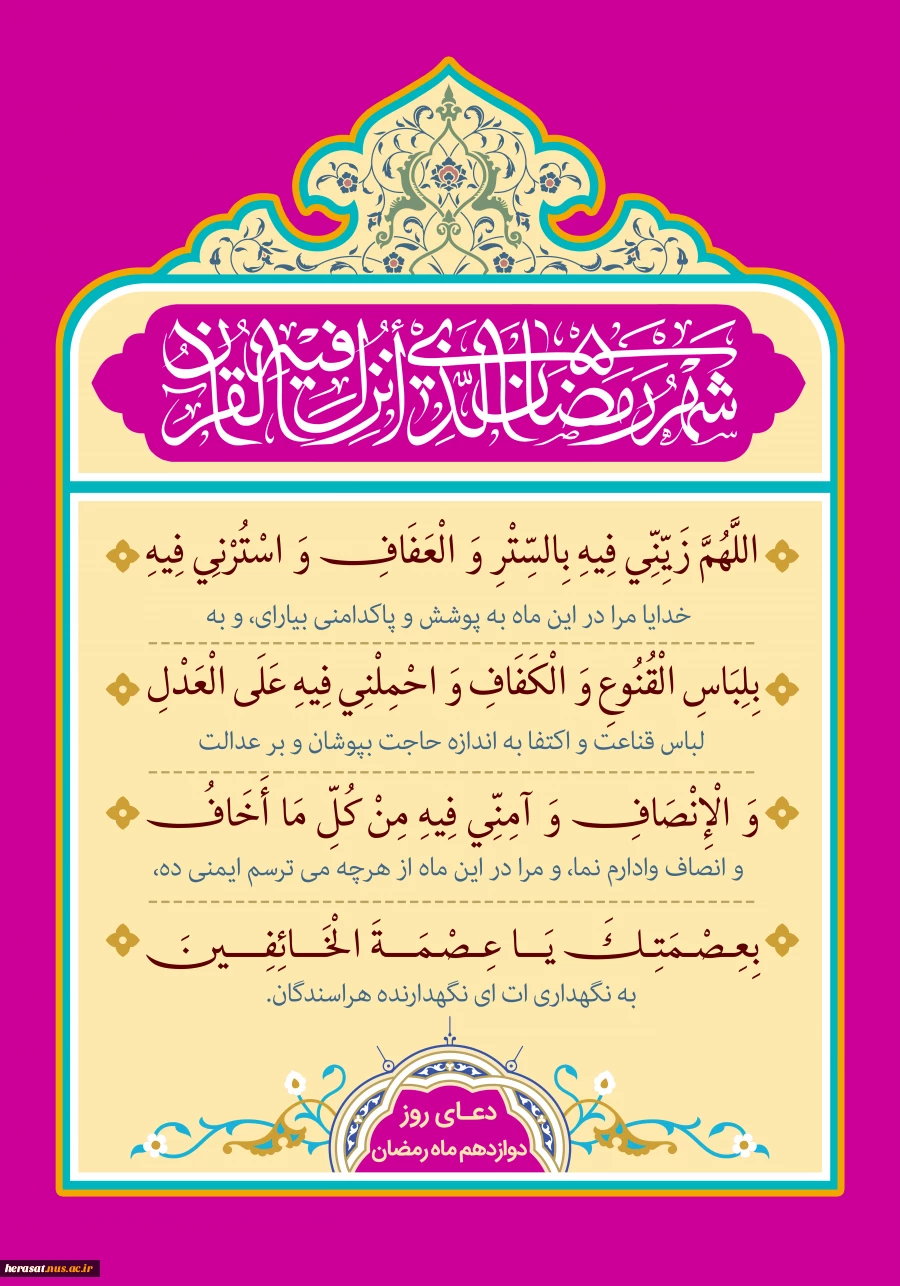 شَهْرُ رَمَضَانَ الَّذِي أُنْزِلَ فِيهِ الْقُرْآنُ
اللَّهُمَّ زَيِّنِّي فِيهِ بِالسِّتْرِ وَ الْعَفَافِ وَ اسْتُرْنِي فِيهِ
خدایا مرا در این ماه به پوشش و پاکدامنی بیارای، و به
بِلِبَاسِ الْقُنُوعِ وَ الْكَفَافِ وَ احْمِلْنِي فِيهِ عَلَى الْعَدْلِ
لباس قناعت و اکتفا به اندازه حاجت بپوشان و بر عدالت
وَ الْإِنْصَافِ وَ آمِنِّي فِيهِ مِنْ كُلِّ مَا أَخَافُ
و انصاف وادارم نما، و مرا در این ماه از هرچه می ترسم ایمنی ده،
بِعِصْمَتِكَ يَا عِصْمَةَ الْخَائِفِينَ
به نگهداری ات ای نگهدارنده هراسندگان.
دعای روز
دوازدهم ماه رمضان
herasat.nus.ac.ir